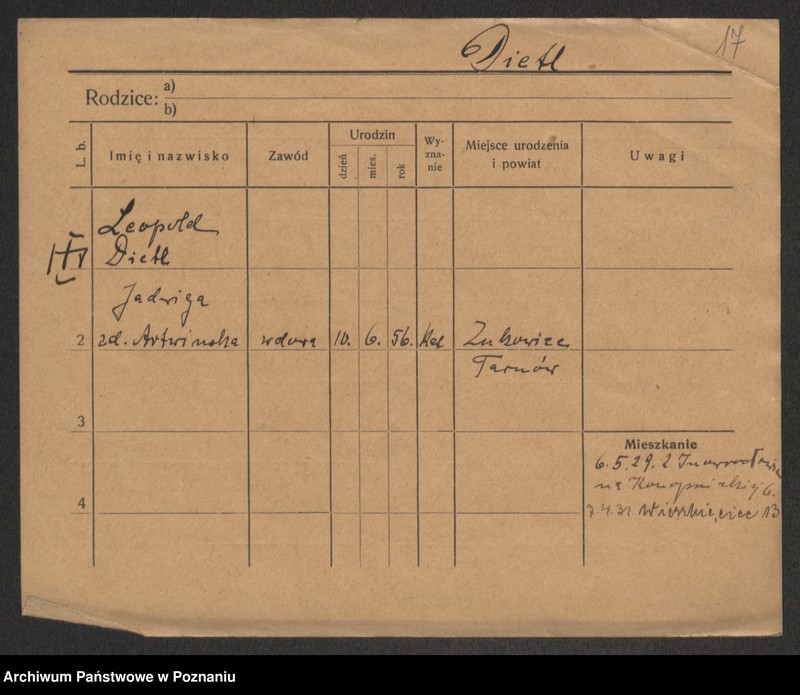 Dietl
17
Rodzice: a)
b)
L. b.
Imię i nazwisko
Zawód
Urodzin
dzień
mies.
rok
Wy-
zna-
nie
Miejsce urodzenia
i powiat
Uwagi
Leopold
Dietl
Jadwiga
2 zd. Artwińska wdowa 10. 6. 56. kat Żukowice
Tarnów
3
Mieszkanie
6.5.29. z Inowrocławia
na Konopnickiej 6.
4
7.4.31 Wierzbięcice 13
Archiwum Państwowe w Poznaniu